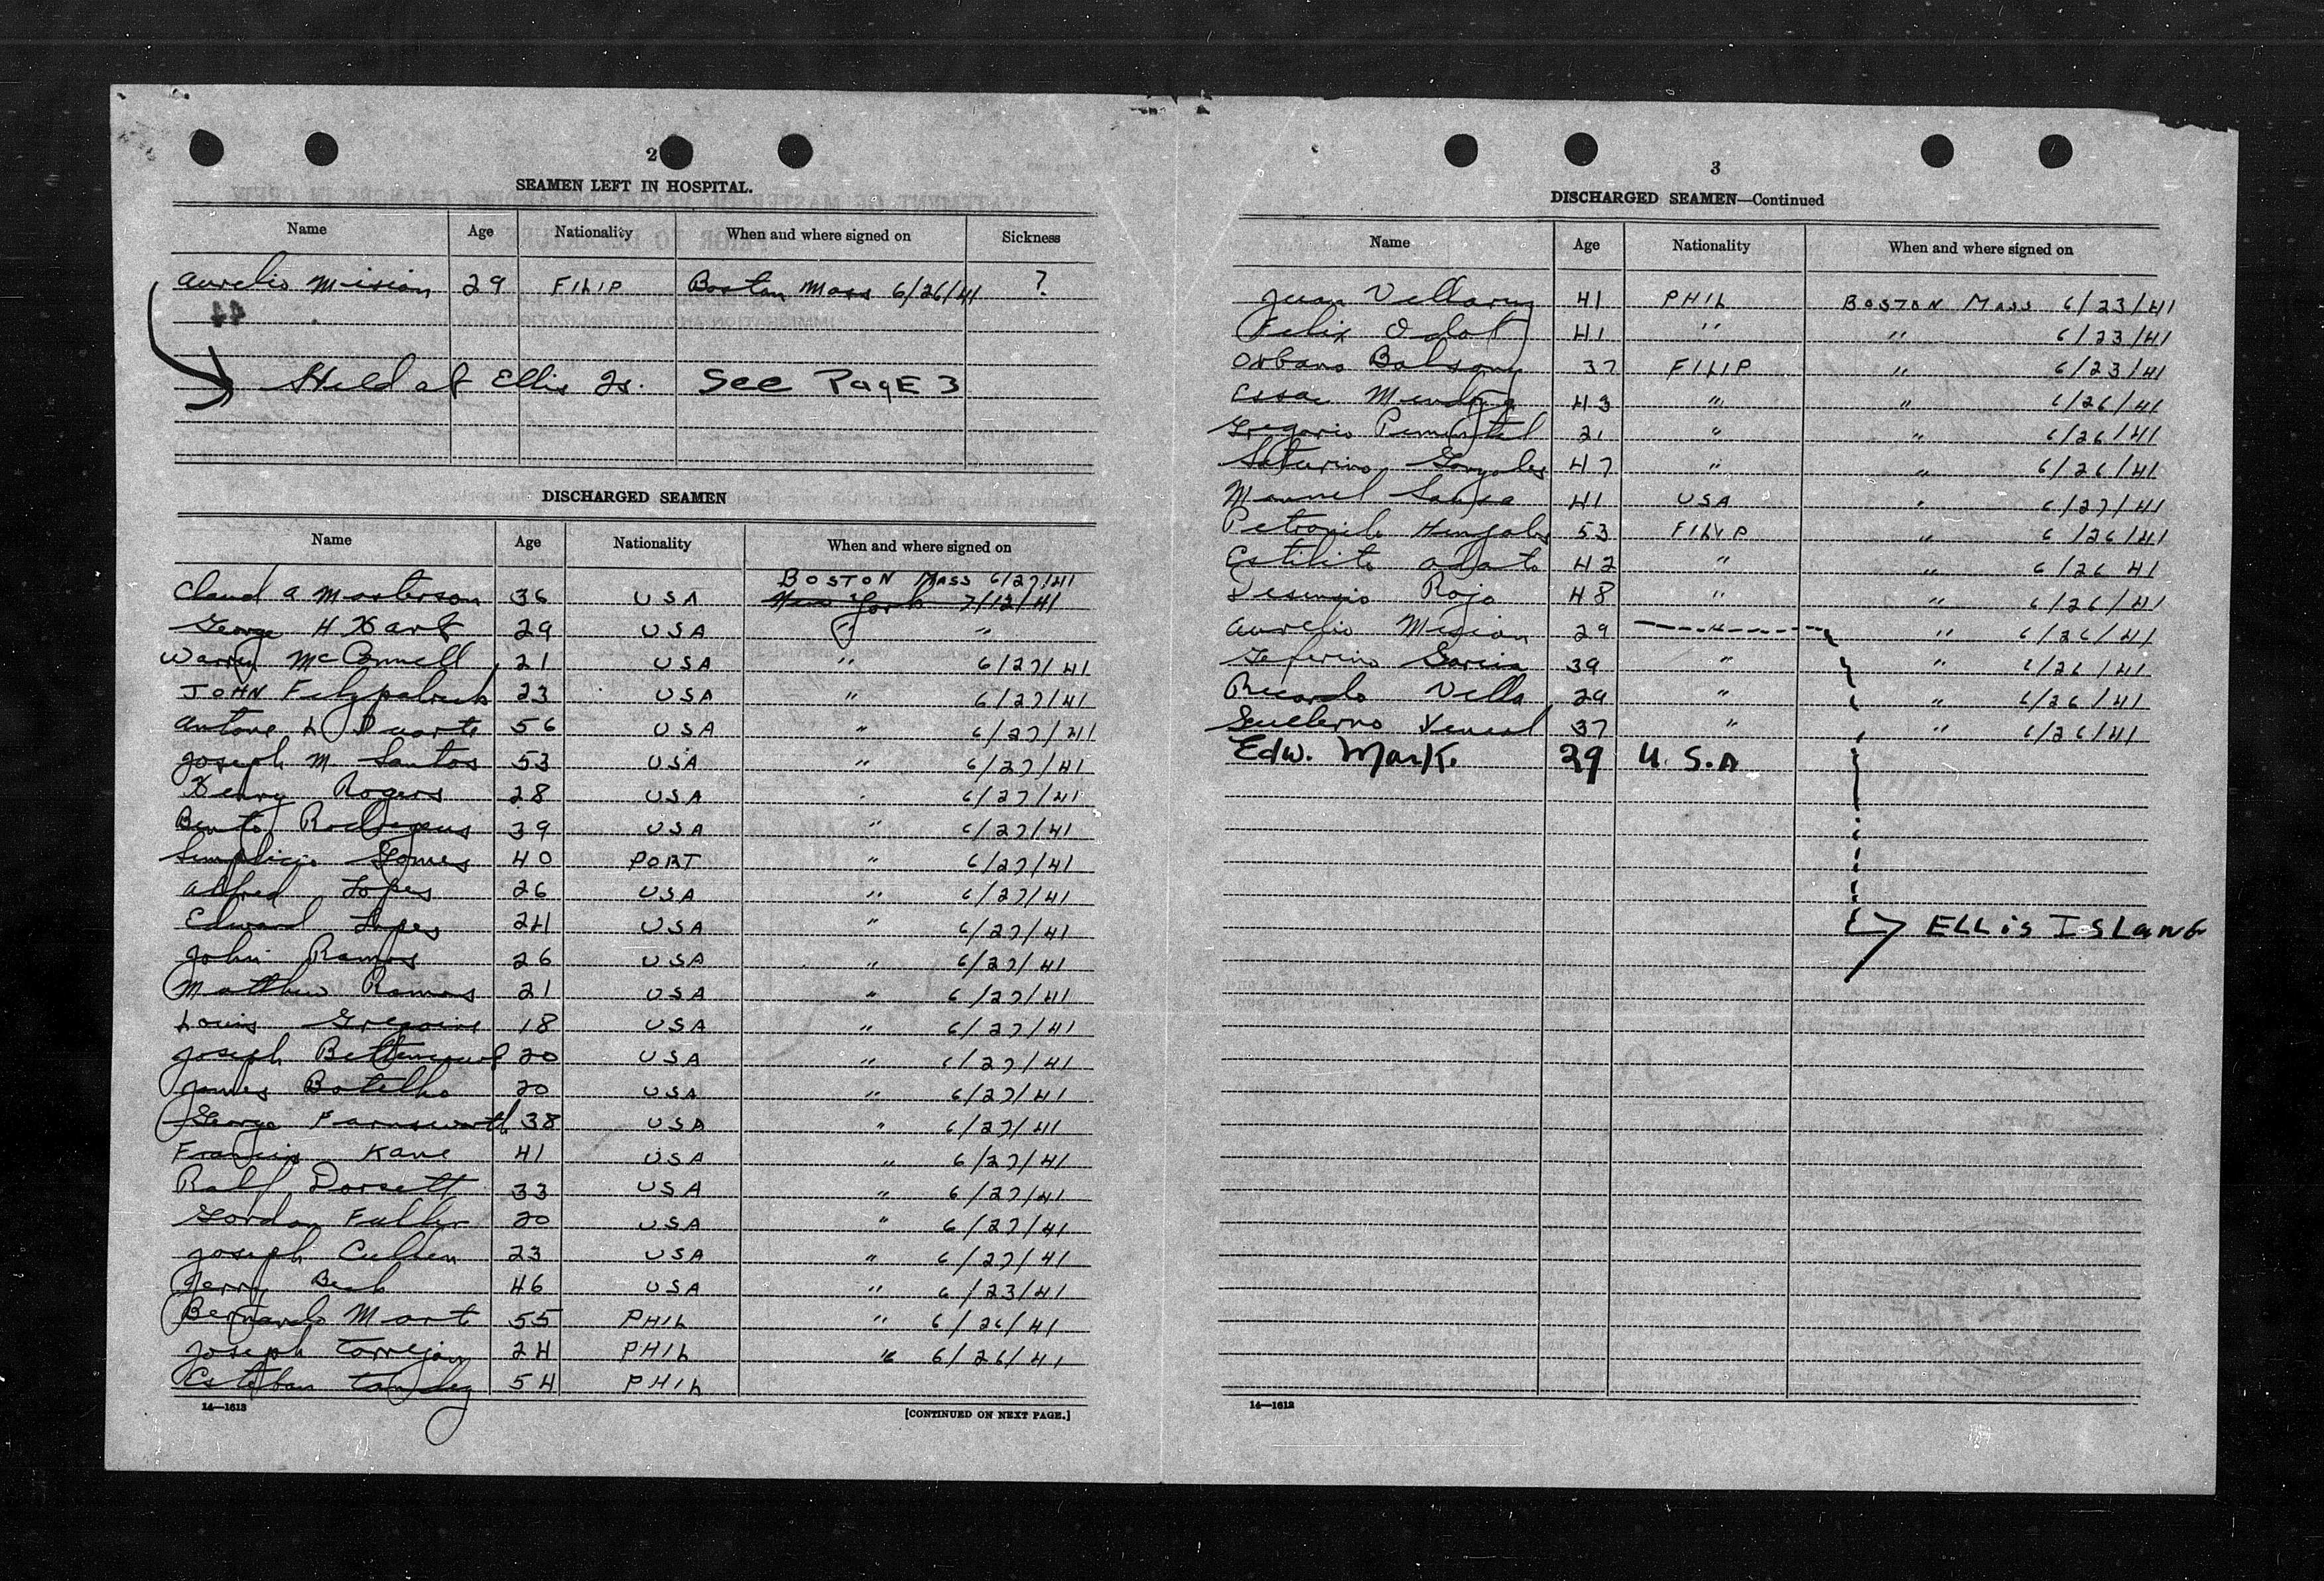 2
SEAMEN LEFT IN HOSPITAL.
Name Age Nationality When and where signed on Sickness
Aurelio Mision 29 FILIP Boston Mass 6/26/41 ?
44
Held at Ellis Is. See PagE 3
DISCHARGED SEAMEN
Name Age Nationality When and where signed on
BOSTON MASS 6/27/41
Claud A Masterson 36 USA New York 7/12/41
George H Hart 29 USA " "
Warren McConnell 21 USA " 6/27/41
JOHN Fitzpatrick 23 USA " 6/27/41
Antone L Duarte 56 USA " 6/27/41
Joseph M Santos 53 USA " 6/27/41
Henry Rogers 28 USA " 6/27/41
Bento Rodrigues 39 USA " 6/27/41
Simplicio Gomes 40 PORT " 6/27/41
Alfred Lopes 26 USA " 6/27/41
Edward Lopes 24 USA " 6/27/41
John Ramos 26 USA " 6/27/41
Matthew Ramos 21 USA " 6/27/41
Louis Gregoire 18 USA " 6/27/41
Joseph Bettencourt 20 USA " 6/27/41
James Botelho 20 USA " 6/27/41
George Farnsworth 38 USA " 6/27/41
Francis Kane 41 USA " 6/27/41
Ralf Dorsett 33 USA " 6/27/41
Gordon Fuller 20 USA " 6/27/41
Joseph Cullen 23 USA " 6/27/41
Jerry 46 USA " 6/23/41
Bernardo Mart 55 PHIL " 6/26/41
Joseph Torrejon 24 PHIL " 6/26/41
Esteban 54 PHIL
14—1613
[CONTINUED ON NEXT PAGE.]
3
DISCHARGED SEAMEN—Continued
Name Age Nationality When and where signed on
Juan 41 PHIL BOSTON MASS 6/23/41
Felix Odot 41 " " 6/23/41
37 FILIP " 6/23/41
43 " " 6/26/41
Gregorio Pimentel 21 " " 6/26/41
Gonzales 47 " " 6/26/41
Manuel 41 USA " 6/27/41
53 FILIP " 6/26/41
42 " " 6/26 41
Rojo 48 " " 6/26/41
Aurelio Mision 29 " " 6/26/41
Garcia 39 " " 6/26/41
Ricardo Villa 29 " " 6/26/41
37 " " 6/26/41
Edw. Mark. 29 U.S.A
ELLis ISLand
14—1613